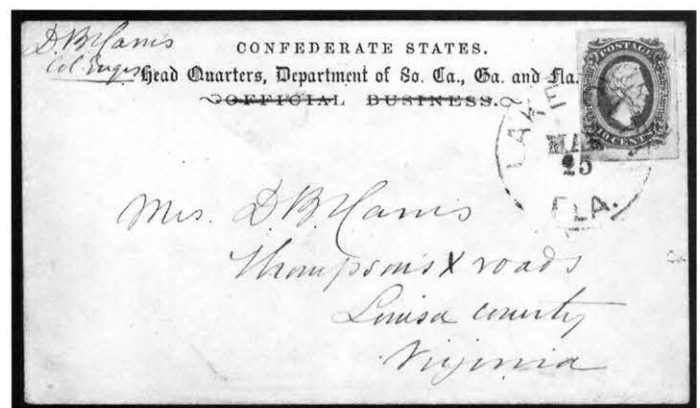 D. B. Harris
Col. Engrs
CONFEDERATE STATES.
Head Quarters, Department of So. Ca., Ga. and Fla.
OFFICIAL BUSINESS.
POSTAGE
10 CENTS
LAKE
MAR
25
FLA.
Mrs. D. B. Harris
Thompson's X roads
Louisa county
Virginia